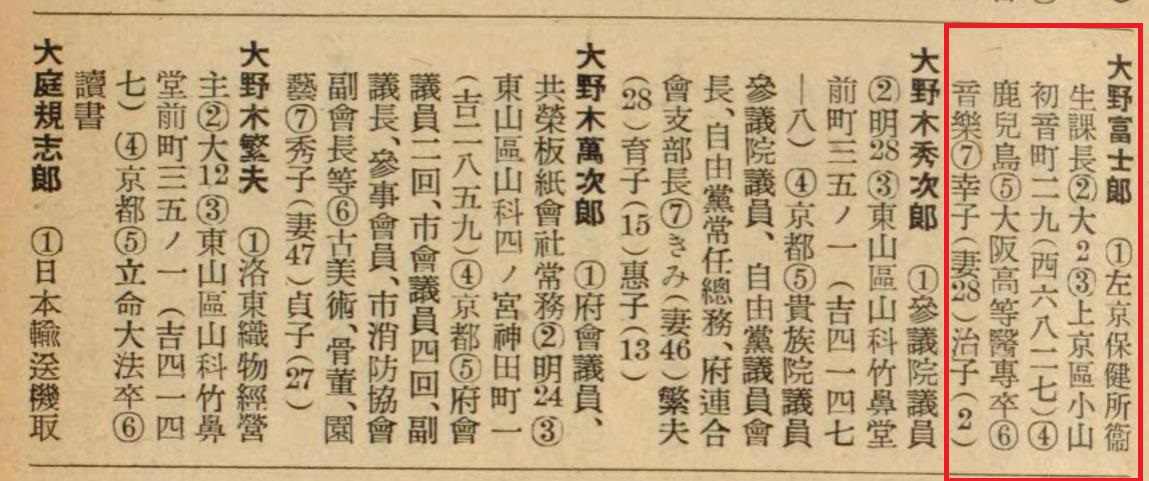 大野富士郎　①左京保健所衞
生課長②大2③上京區小山
初音町二九(西六八二七)④
鹿兒島⑤大阪高等醫專卒⑥
音樂⑦幸子(妻28)治子(2)
大野木秀次郎　①參議院議員
②明28③東山區山科竹鼻堂
前町三五ノ一(吉四一四七
―八)④京都⑤貴族院議員
參議院議員、自由黨議員會
長、自由黨常任總務、府連合
會支部長⑦きみ(妻46)繁夫
(28)育子(15)惠子(13)
大野木萬次郎　①府會議員、
共榮板紙會社常務②明24③
東山區山科四ノ宮神田町一
(吉二八五九)④京都⑤府會
議員二回、市會議員四回、副
議長、參事會員、市消防協會
副會長等⑥古美術、骨董、園
藝⑦秀子(妻47)貞子(27)
大野木繁夫　①洛東織物經營
主②大12③東山區山科竹鼻
堂前町三五ノ一(吉四一四
七)④京都⑤立命大法卒⑥
讀書
大庭規志郎　①日本輸送機取